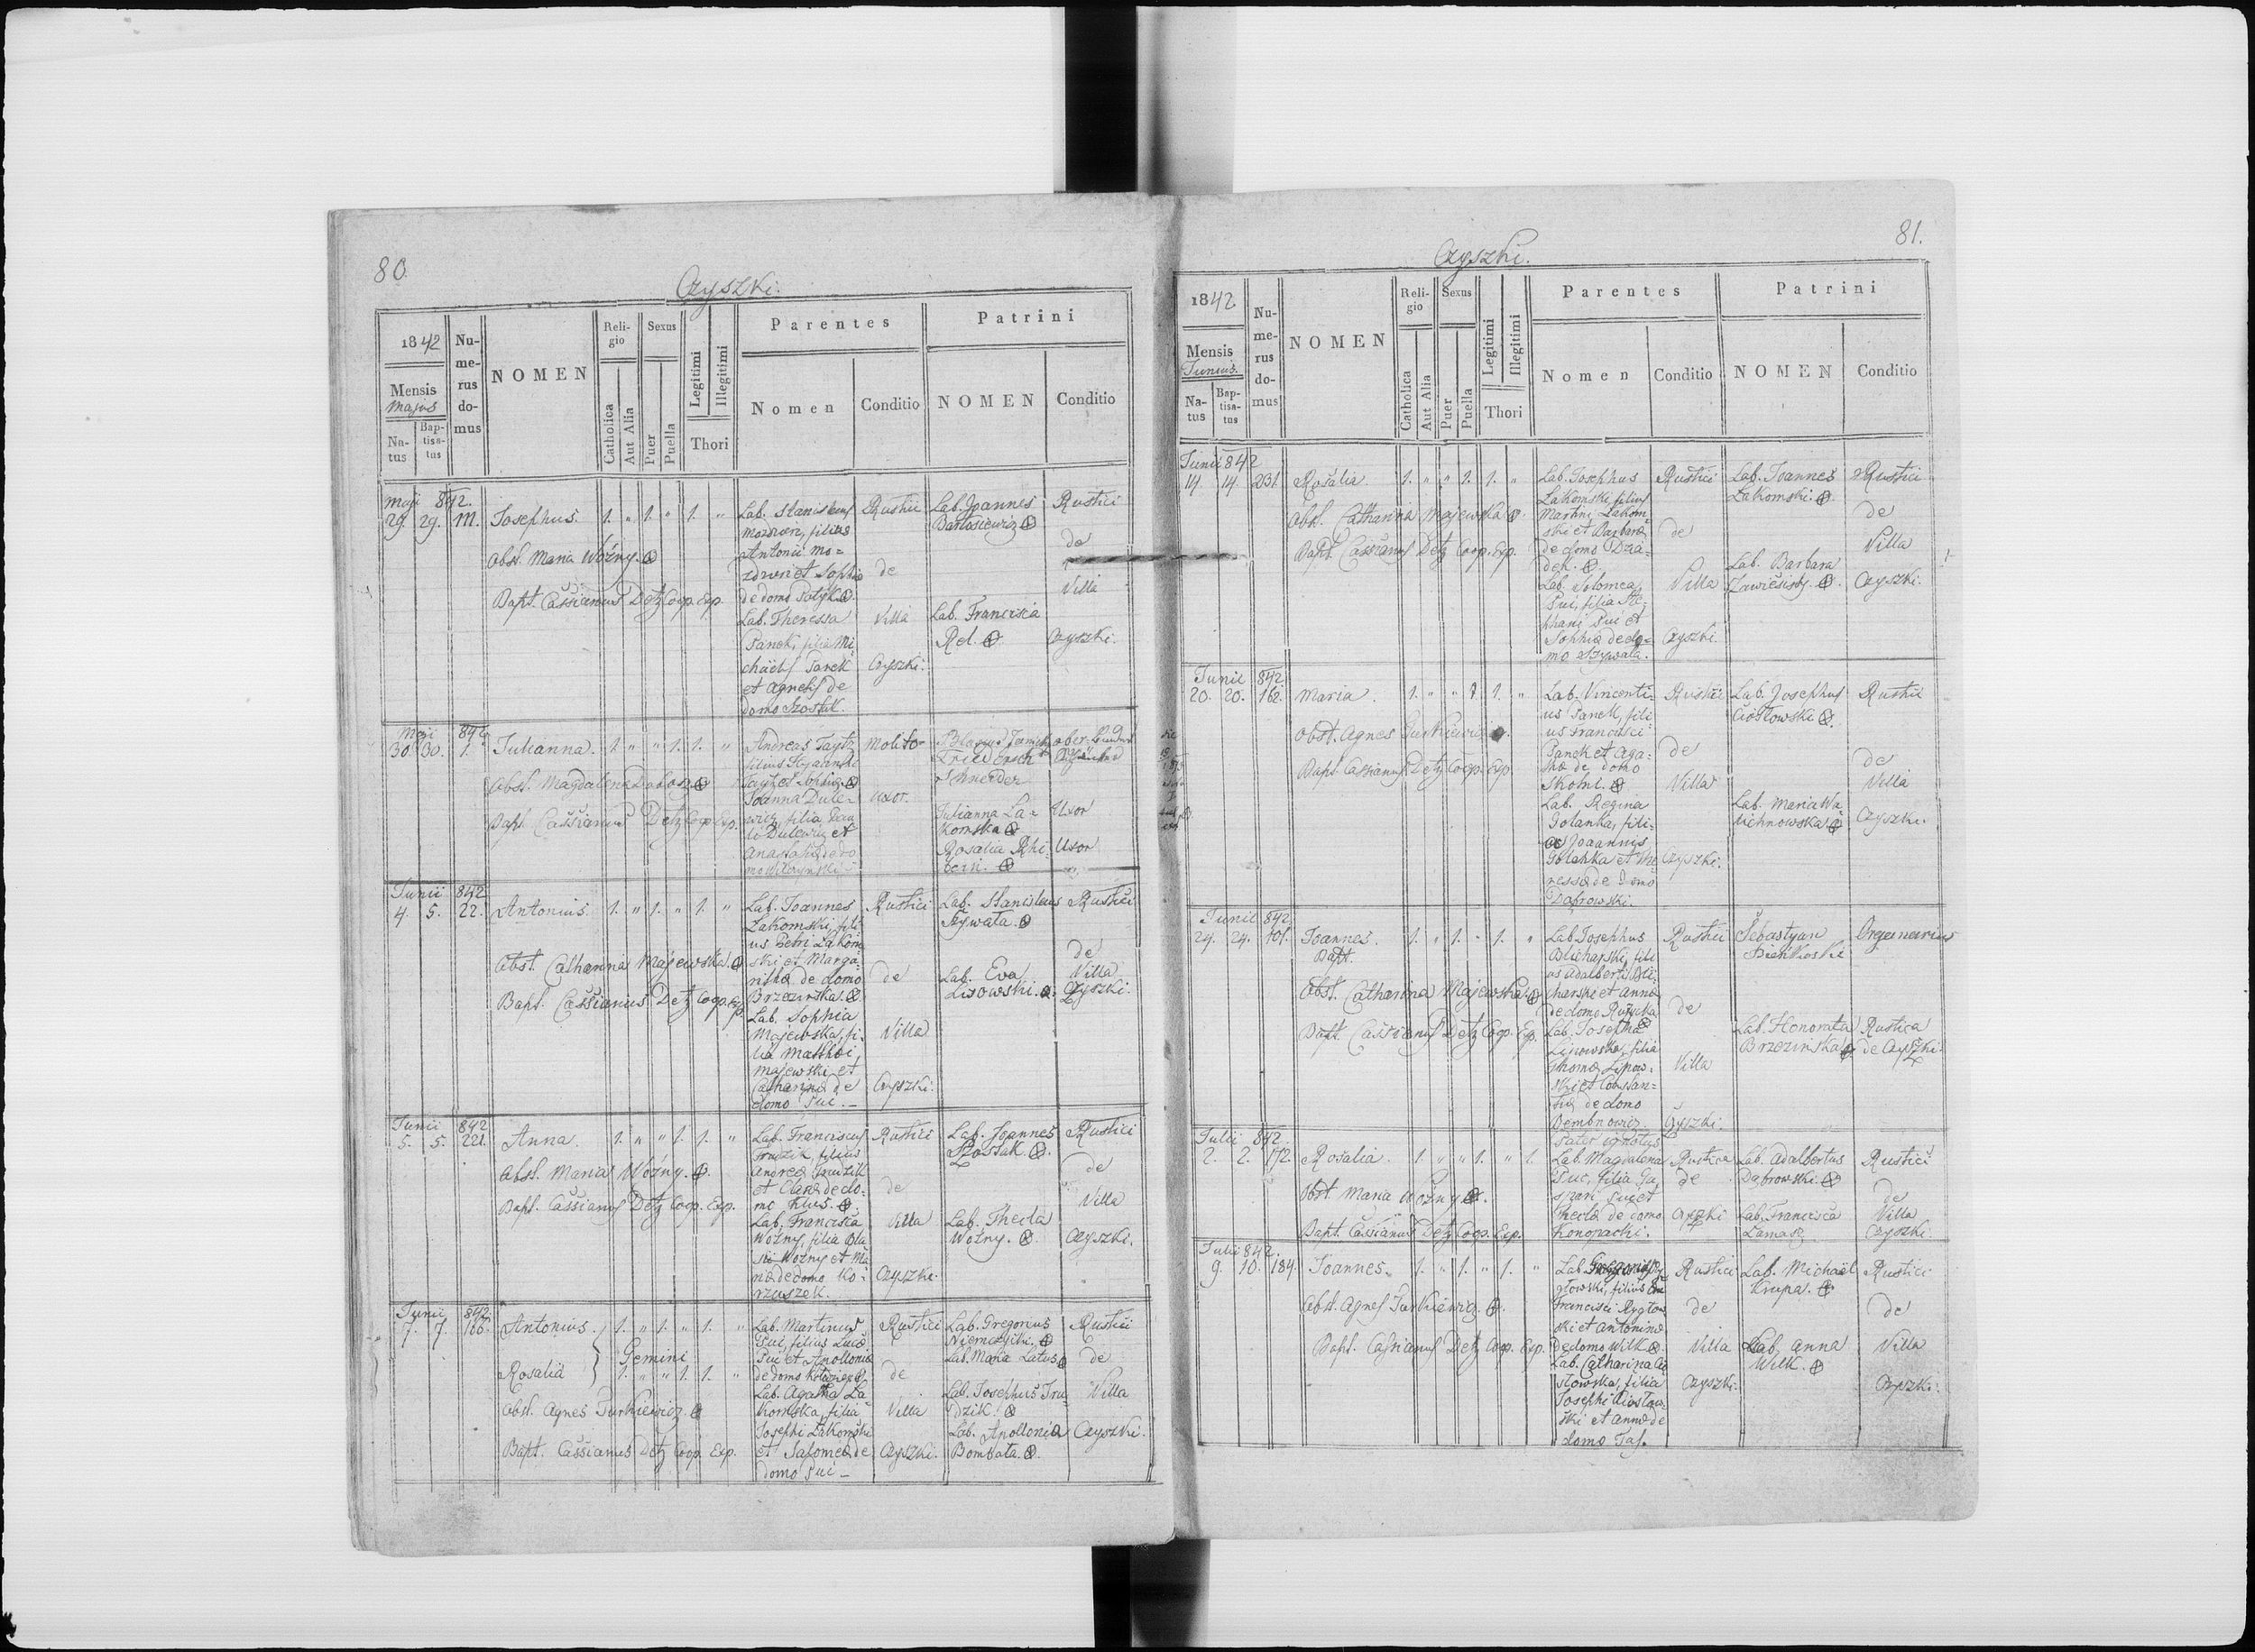 80.
Czyszki.
1842
Mensis
Majus
Na-
tus
Bap-
tisa-
tus
Nu-
me-
rus
do-
mus
NOMEN
Reli-
gio
Catholica
Aut Alia
Sexus
Puer
Puella
Legitimi
Illegitimi
Thori
Parentes
Nomen
Conditio
Patrini
NOMEN
Conditio
Maji 842.
29. 29. 111. Josephus. 1. " 1. " 1. "
Obst. Maria Woźny.
Bapt. Cassianus Detz Coop. Exp.
Lab. Stanislaus
Mozdzen, filius
Antonii Mo-
zdzen et Sophia
de domo
Lab. Theressa
Panek, filia Mi-
chaelis Panek
et Agnetis de
domo Szostak.
Rustici
de
Villa
Czyszki.
Lab. Joannes
Bartosiewicz
Lab. Francisca
Rel.
Rustici
de
Villa
Czyszki.
Maji 842
30. 30. 1. Julianna. 1. " " 1. 1. "
Obst. Magdalena Dobosz.
Bapt. Cassianus Detz Coop. Exp.
Andreas Taytz
filius
Taytz et Sophia
Joanna Dule-
wicz, filia Pau-
li Dulewicz et
Anastasia de do
mo Wilczynski
Molitor
uxor.
Schneider
Julianna La-
komska
Rosalia
Uxor
Uxor
Junii 842
4. 5. 22. Antonius. 1. " 1. " 1. "
Obst. Catharina Majewska.
Bapt. Cassianus Detz Coop. Exp.
Lab. Joannes
Lakomski, fili-
us Petri Lakom
ski et Marga-
ritha de domo
Brzezinska.
Lab. Sophia
Majewska, fi-
lia Mathei
Majewski et
Catharina de
domo Puc.
Rustici
de
Villa
Czyszki.
Lab. Stanislaus
Szywala.
Lab. Eva
Lisowski.
Rustici
de
Villa
Czyszki.
Junii 842
5. 5. 221. Anna. 1. " " 1. 1. "
Obst. Maria Woźny.
Bapt. Cassianus Detz Coop. Exp.
Lab. Franciscus
Trudzik, filius
Andrea Trudzik
et Clara de do-
mo Kluś.
Lab. Francisca
Woźny, filia Bla
sii Woźny et Ma
ria de domo Ko-
rzuszek.
Rustici
de
Villa
Czyszki.
Lab. Joannes
Szostak.
Lab. Thecla
Woźny.
Rustici
de
Villa
Czyszki.
Junii 842
7. 7. 166. Antonius. 1. " 1. " 1. "
Gemini
Rosalia 1. " " 1. 1. "
Obst. Agnes Turkiewicz.
Bapt. Cassianus Detz Coop. Exp.
Lab. Martinus
Puc, filius Luca
Puc et Apollonia
de domo
Lab. Agatha La
komska, filia
Josephi Lakomski
et Salomea de
domo Puc
Rustici
de
Villa
Czyszki.
Lab. Gregorius
Niemczycki.
Lab. Maria Latus
Lab. Josephus Tru
dzik.
Lab. Apollonia
Bombała.
Rustici
de
Villa
Czyszki.
81.
Czyszki.
1842
Mensis
Junius.
Na-
tus
Bap-
tisa-
tus
Nu-
me-
rus
do-
mus
NOMEN
Reli-
gio
Catholica
Aut Alia
Sexus
Puer
Puella
Legitimi
Illegitimi
Thori
Parentes
Nomen
Conditio
Patrini
NOMEN
Conditio
Junii 842
14. 14. 231. Rosalia. 1. " " 1. 1. "
Obst. Catharina Majewska.
Bapt. Cassianus Detz Coop. Exp.
Lab. Josephus
Lakomski, filius
Martini Lakom-
ski et Barbara
de domo Dzia-
dek.
Lab. Salomea
Puc, filia Ste-
phani Puc et
Sophia de do-
mo Szywala.
Rustici
de
Villa
Czyszki.
Lab. Joannes
Lakomski.
Lab. Barbara
Rustici
de
Villa
Czyszki.
Junii 842
20. 20. 162. Maria. 1. " " 1. 1. "
Obst. Agnes Turkiewicz.
Bapt. Cassianus Detz Coop. Exp.
Lab. Vincenti-
us Panek, fili-
us Francisci
Panek et Aga-
tha de domo
Lab. Regina
Golanka, fili-
a Joannis
Golanka et The
ressa de domo
Dąbrowski.
Rustici
de
Villa
Czyszki.
Lab. Josephus
Ciosłowski.
Lab. Maria Wa
lichnowska
Rustici
de
Villa
Czyszki.
Junii 842
24. 24. 101. Joannes. 1. " 1. " 1. "
Bapt.
Obst. Catharina Majewska.
Bapt. Cassianus Detz Coop. Exp.
Lab. Josephus
Blicharski, fili
us Adalberti Bli-
charski et Anna
de domo Różycka
Lab. Josepha
Lipowska, filia
Thoma Lipow-
ski et Constan-
tia de domo
Dembnowicz.
Rustici
de
Villa
Czyszki.
Sebastyan
Bieńkoski
Lab. Honorata
Brzezinska
Organarius
Rustica
de Czyszki.
Julii 842.
2. 2. 172. Rosalia. 1. " " 1. " 1.
Obst. Maria Woźny.
Bapt. Cassianus Detz Coop. Exp.
Pater ignotus
Lab. Magdalena
Puc, filia Ga
spari Puc et
Thecla de domo
Konopacki.
Rustica
de
Czyszki
Lab. Adalbertus
Dąbrowski.
Lab. Francisca
Łamasz
Rustici
de
Villa
Czyszki.
Julii 842.
9. 10. 184. Joannes. 1. " 1. " 1. "
Obst. Agnes Turkiewicz.
Bapt. Cassianus Detz Coop. Exp.
Lab. Gregorius Ry
głowski, filius
Francisci Rygłow
ski et Antonina
de domo Wilk.
Lab. Catharina Cio
słowska, filia
Josephi Ciosłow-
ski et Anna de
domo Taf.
Rustici
de
Villa
Czyszki.
Lab. Michaël
Krupa.
Lab. Anna
Wilk.
Rustici
de
Villa
Czyszki.